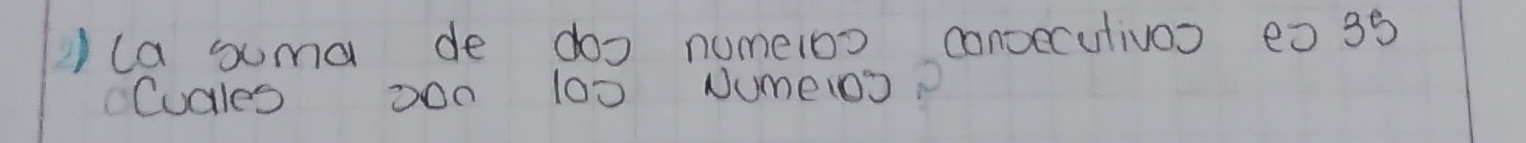 2) La suma de dos numeros consecutivos es 35
Cuales son los Numeros?